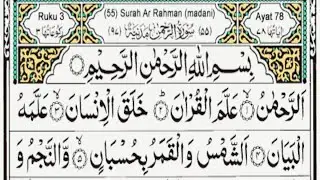 Ruku 3 (55) Surah Ar Rahman (madani) Ayat 78
رکوعاتھا ۳ (۹۷) سُوْرَةُ الرَّحْمٰنِ مَدَنِيَّةٌ (۵۵) اٰیاتھا ۷۸
بِسْمِ اللّٰهِ الرَّحْمٰنِ الرَّحِيْمِ
اَلرَّحْمٰنُ ۙ﴿۱﴾ عَلَّمَ الْقُرْاٰنَ ؕ﴿۲﴾ خَلَقَ الْاِنْسَانَ ۙ﴿۳﴾ عَلَّمَهُ
الْبَيَانَ ﴿۴﴾ اَلشَّمْسُ وَالْقَمَرُ بِحُسْبَانٍ ۪﴿۵﴾ وَّالنَّجْمُ وَ